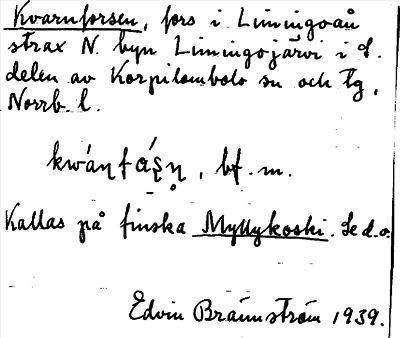 Kvarnforsen, fors i Liningoån
strax N. byn Liningojärvi i S.
delen av Korpilombolo sn och tg,
Norrb. l.
kwáɳfáʂɳ̥, bf. m.
Kallas på finska Myllykoski. Se d.o.
Edvin Brännström 1939.